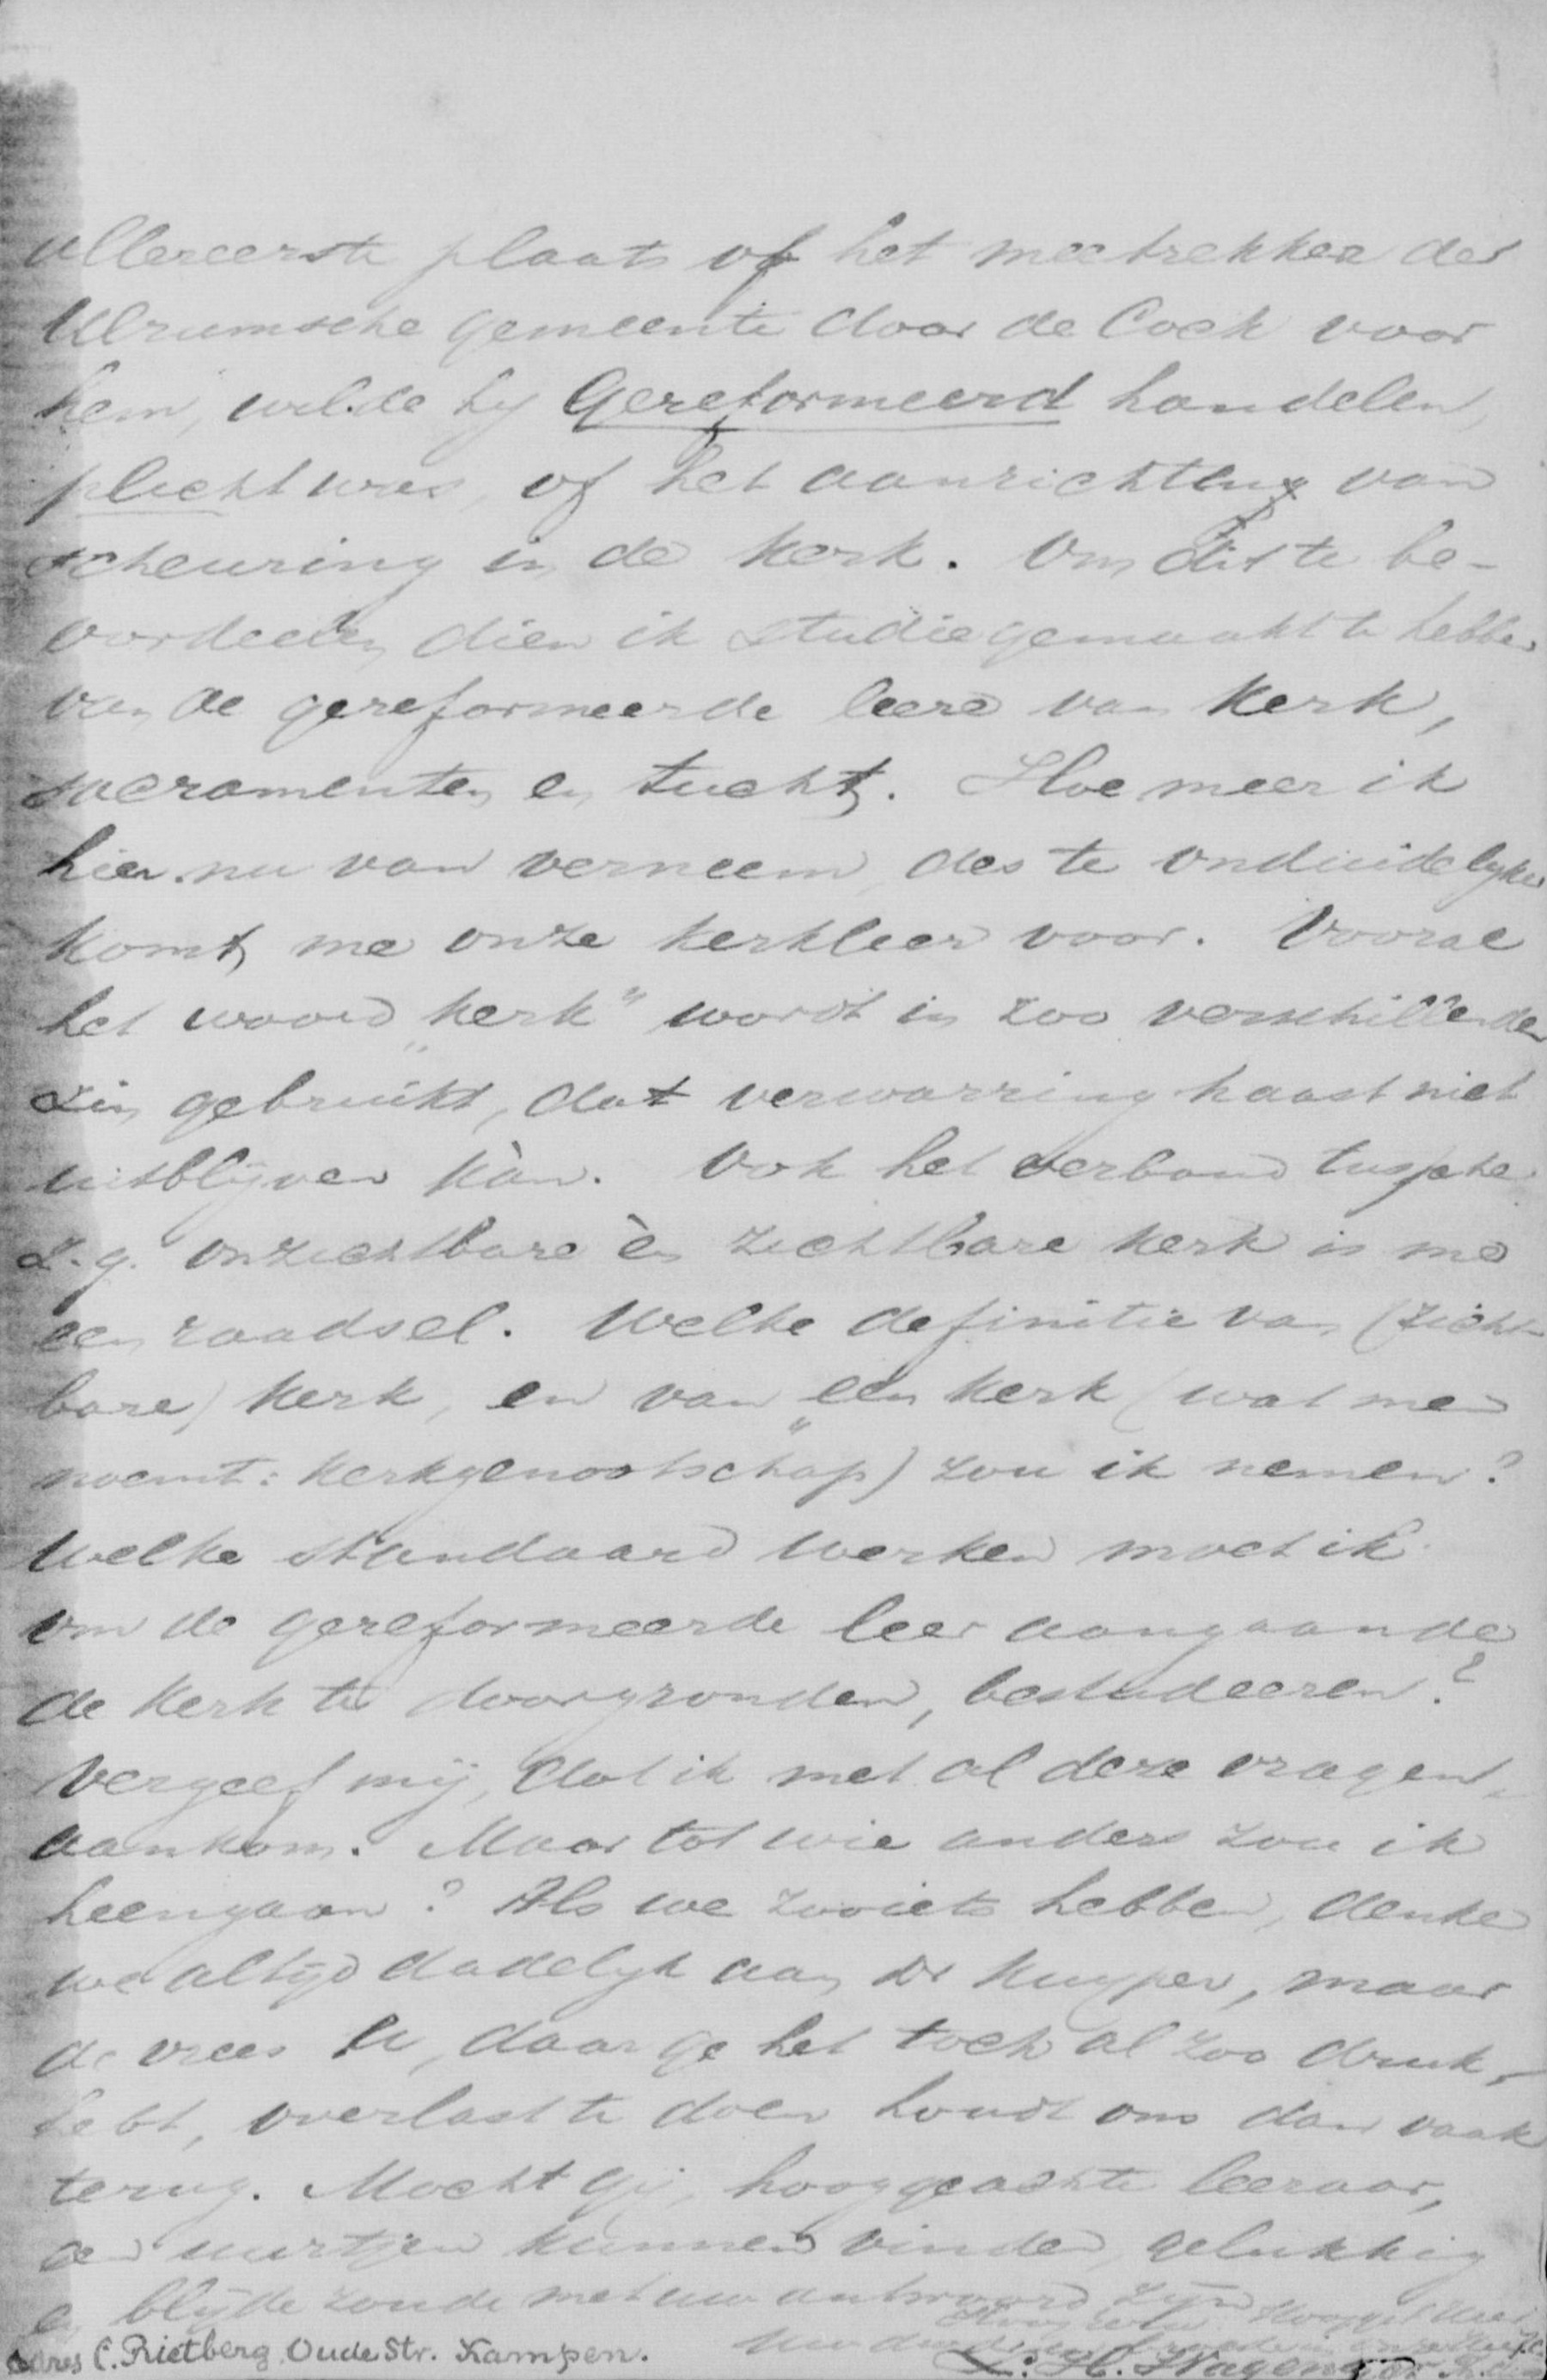 allereerste plaats of het meetrekken der
Ulrumsche gemeente door de Cock voor
hem, wilde hy Gereformeerd handelen,
plicht was, of het aanrichten van
scheuring in de Kerk. Om dit te be-
oordeelen dien ik studie gemaakt te hebben
van de gereformeerde leere van Kerk,
sacramenten en tucht. Hoe meer ik
hier nu van verneem, des te onduidelyker
komt me onze kerkleer voor. Vooral
het woord „kerk" wordt in zoo verschillenden
zin gebruikt, dat verwarring haast niet
uitblijven kàn. Ook het verband tussche
z.g. onzichtbare èn zichtbare kerk is me
een raadsel. Welke definitie van (zicht-
bare) Kerk, en van „een kerk (wat men
noemt: kerkgenootschap) zou ik nemen?
Welke standaard werken moet ik
om de gereformeerde leer aangaande
de Kerk te doorgronden, bestudeeren?
Vergeef mij, dat ik met al deze vragen
aankom. Maar tot wie anders zou ik
heengaan? Als we zooiets hebben, denken
we altijd dadelyk aan Dr Kuyper, maar
de vrees U, daar ge het toch al zoo druk
hebt, overlast te doen houdt ons dan vaak
terug. Mocht gij, hooggeachte leeraar,
een uurtjen kunnen vinden, gelukkig
en blijde zoude met uw antwoord zijn
L. H. Wagenaar
adres C. Rietberg Oude Str. Kampen.